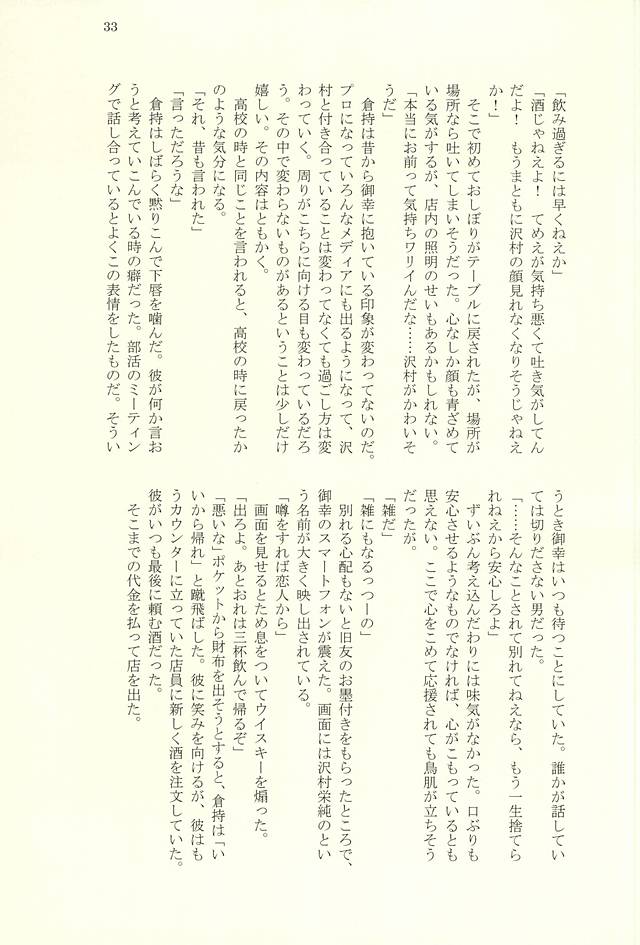 33
「飲み過ぎるには早くねえか」
「酒じゃねえよ！　てめえが気持ち悪くて吐き気がしてん
だよ！　もうまともに沢村の顔見れなくなりそうじゃねえ
か！」
　そこで初めておしぼりがテーブルに戻されたが、場所が
場所なら吐いてしまいそうだった。心なしか顔も青ざめて
いる気がするが、店内の照明のせいもあるかもしれない。
「本当にお前って気持ちワリイんだな……沢村がかわいそ
うだ」
　倉持は昔から御幸に抱いている印象が変わってないのだ。
プロになっていろんなメディアにも出るようになって、沢
村と付き合っていることは変わってなくても過ごし方は変
わっていく。周りがこちらに向ける目も変わっているだろ
う。その中で変わらないものがあるということは少しだけ
嬉しい。その内容はともかく。
　高校の時と同じことを言われると、高校の時に戻ったか
のような気分になる。
「それ、昔も言われた」
「言っただろうな」
　倉持はしばらく黙りこんで下唇を噛んだ。彼が何か言お
うと考えていこんでいる時の癖だった。部活のミーティン
グで話し合っているとよくこの表情をしたものだ。そうい
うとき御幸はいつも待つことにしていた。誰かが話してい
ては切りださない男だった。
「……そんなことされて別れてねえなら、もう一生捨てら
れねえから安心しろよ」
　ずいぶん考え込んだわりには味気がなかった。口ぶりも
安心させるようなものでなければ、心がこもっているとも
思えない。ここで心をこめて応援されても鳥肌が立ちそう
だったが。
「雑だ」
「雑にもなるっつーの」
　別れる心配もないと旧友のお墨付きをもらったところで、
御幸のスマートフォンが震えた。画面には沢村栄純のとい
う名前が大きく映し出されている。
「噂をすれば恋人から」
　画面を見せるとため息をついてウイスキーを煽った。
「出ろよ。あとおれは三杯飲んで帰るぞ」
「悪いな」ポケットから財布を出そうとすると、倉持は「い
いから帰れ」と蹴飛ばした。彼に笑みを向けるが、彼はも
うカウンターに立っていた店員に新しく酒を注文していた。
彼がいつも最後に頼む酒だった。
　そこまでの代金を払って店を出た。